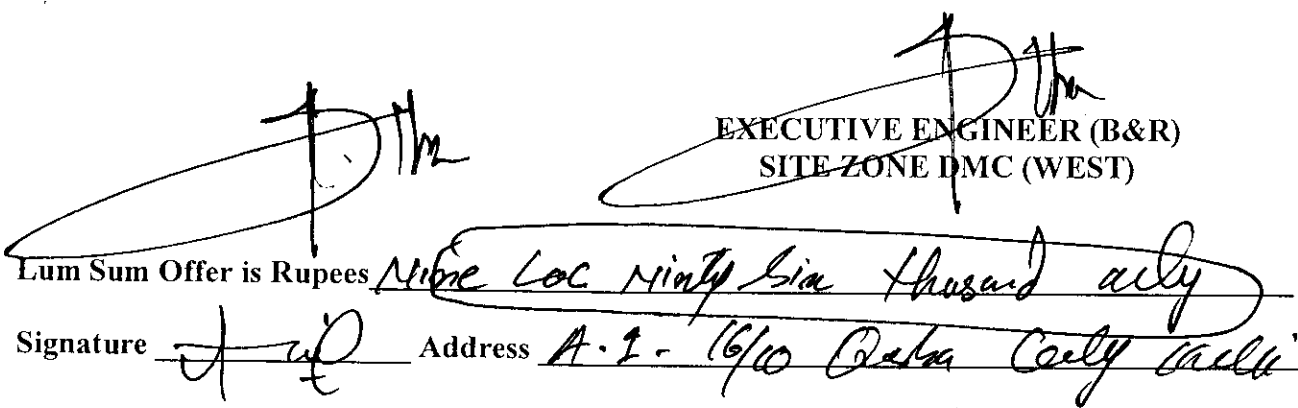 EXECUTIVE ENGINEER (B&R)
SITE ZONE DMC (WEST)
Lum Sum Offer is Rupees Nine Lac Ninty Six thusand only
Signature Address A.1- 16/10